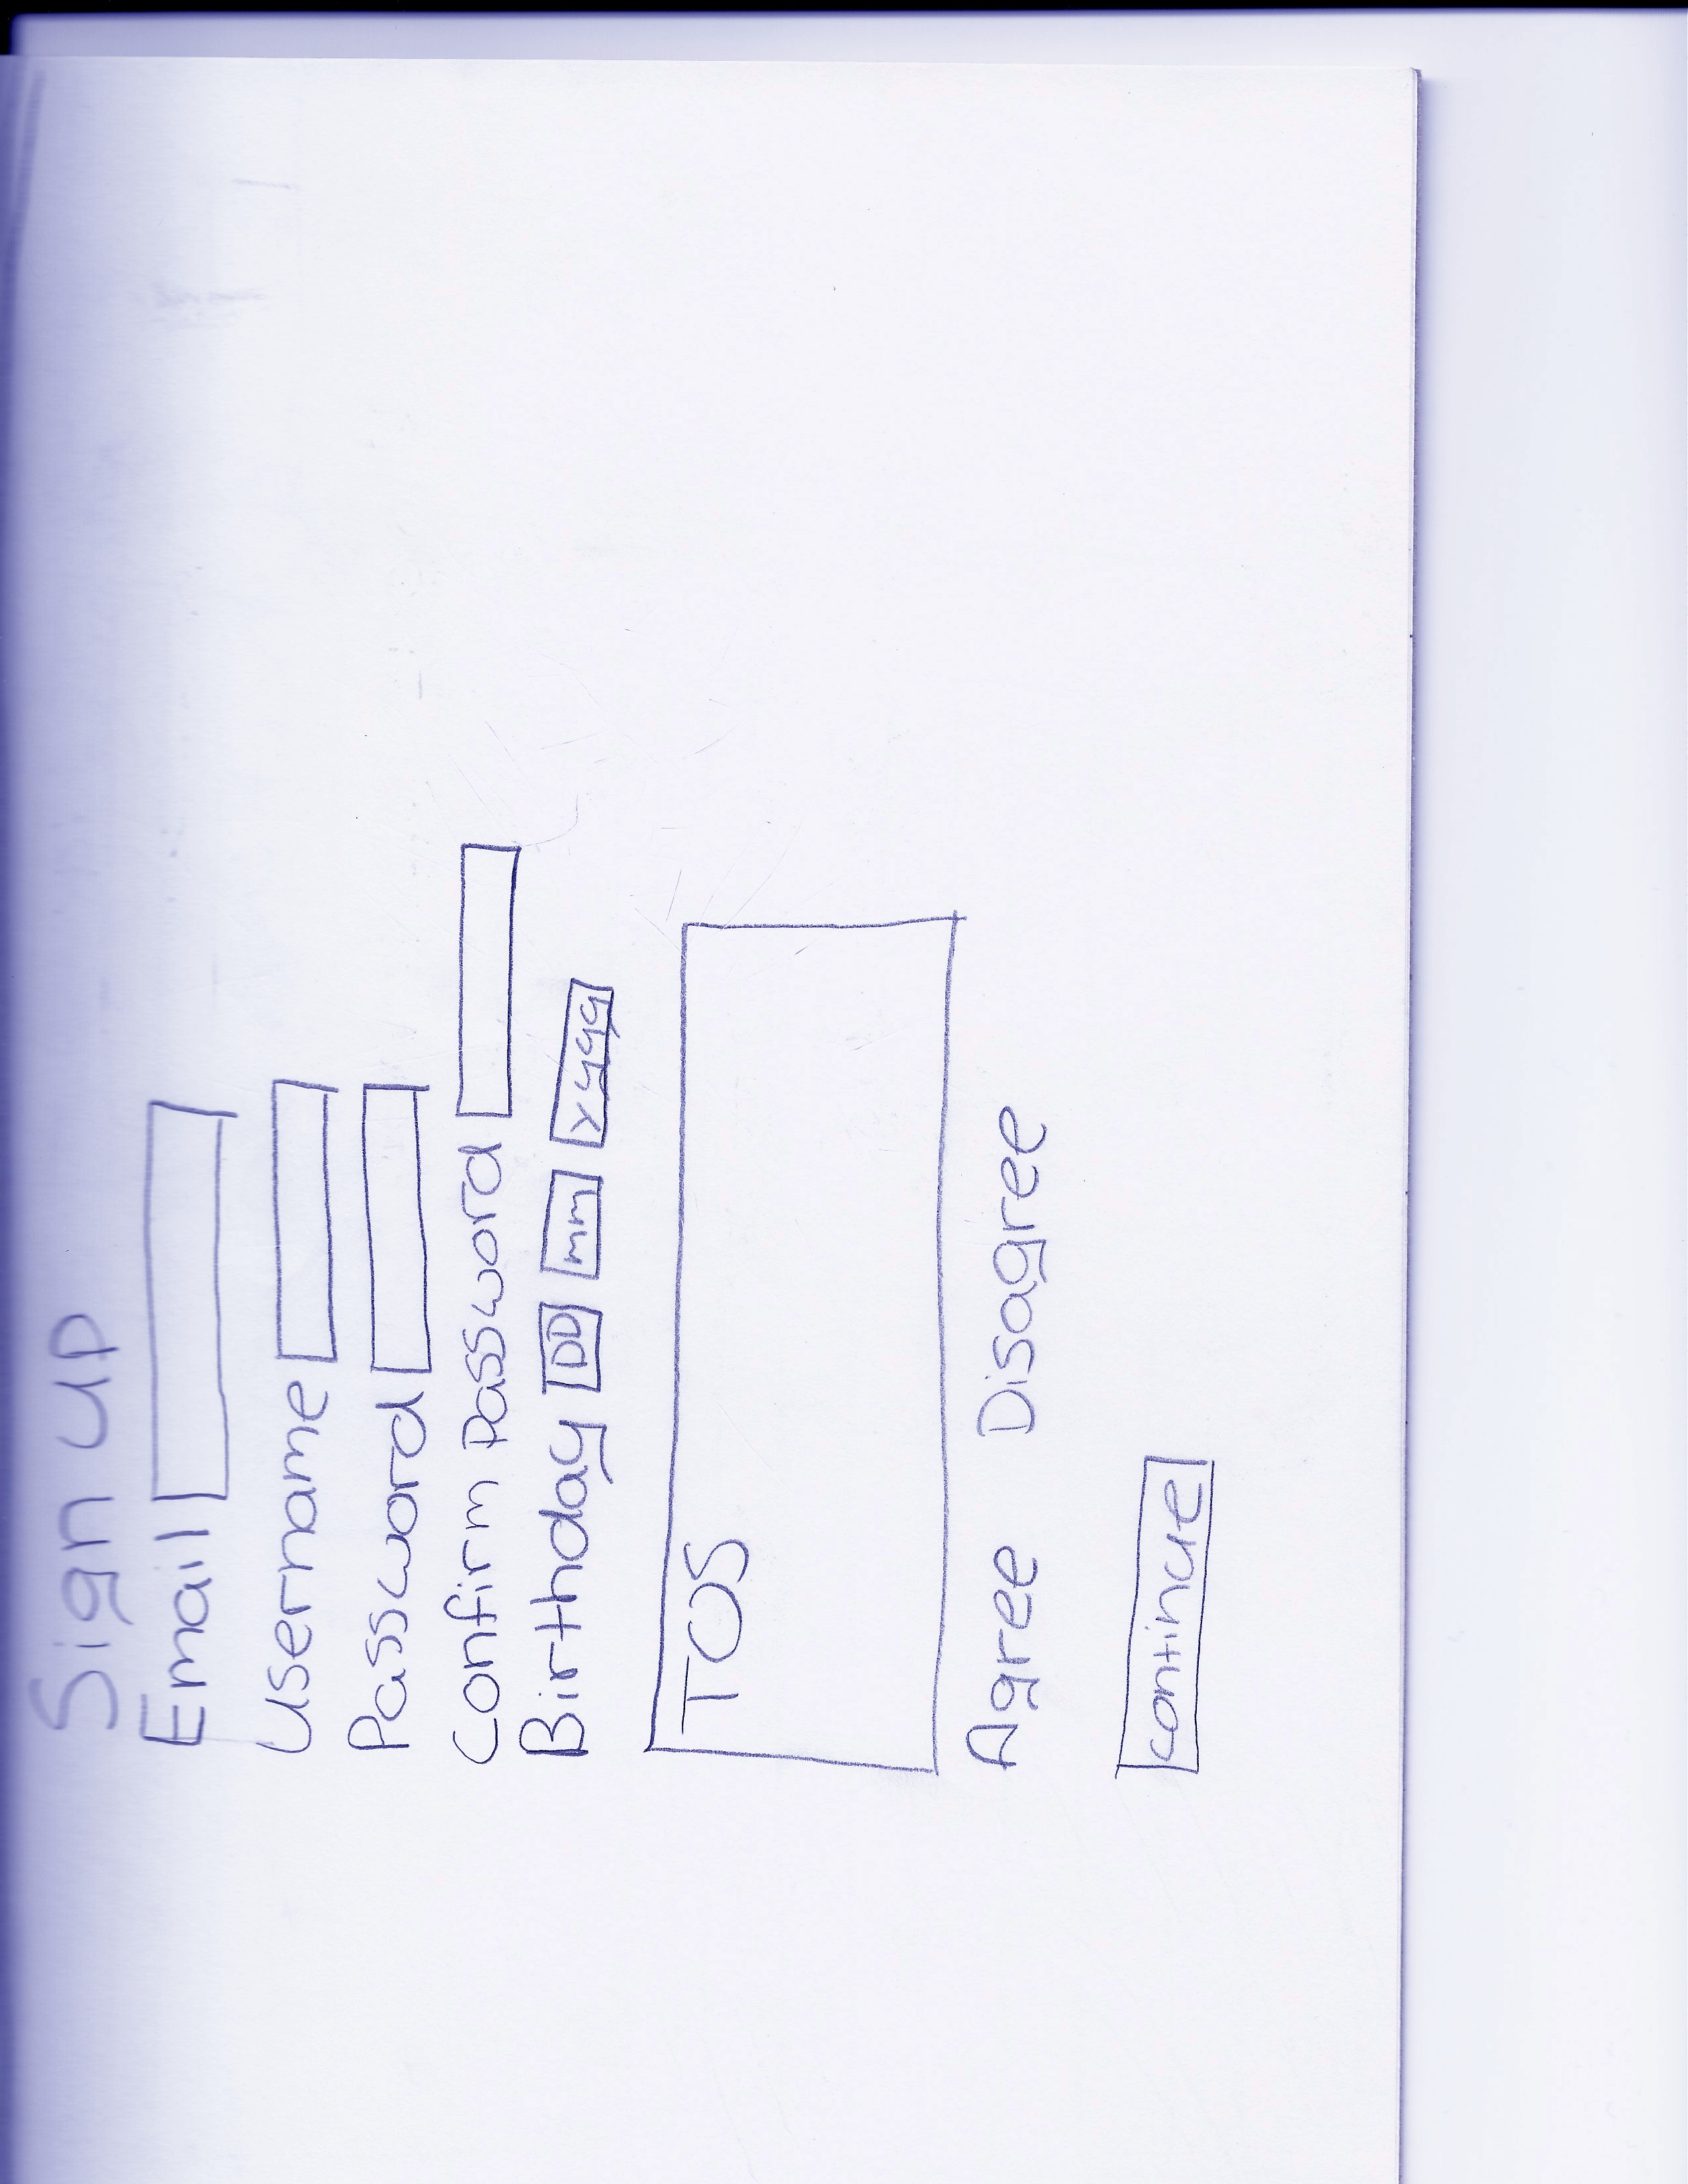 Sign up
Email
Username
Password
Confirm Password
Birthday DD mm yyyy
TOS
Agree Disagree
continue